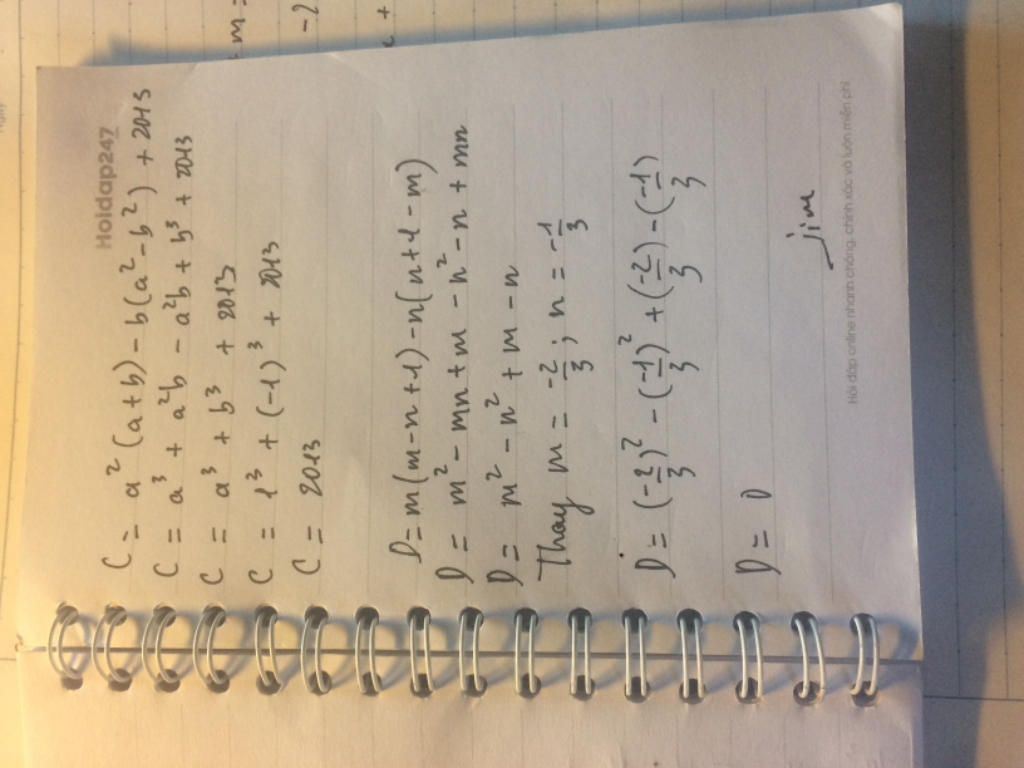 Hoidap247
C = a² (a+b) - b(a² - b²) + 2013
C = a³ + a²b - a²b + b³ + 2013
C = a³ + b³ + 2013
C = 1³ + (-1)³ + 2013
C = 2013
D = m(m-n+1) - n(n+1-m)
D = m² - mn + m - n² - n + mn
D = m² - n² + m - n
Thay m = -2/3 ; n = -1/3
D = (-2/3)² - (-1/3)² + (-2/3) - (-1/3)
D = 0
jim
Hỏi đáp online nhanh chóng, chính xác và luôn miễn phí
m=
-2
+